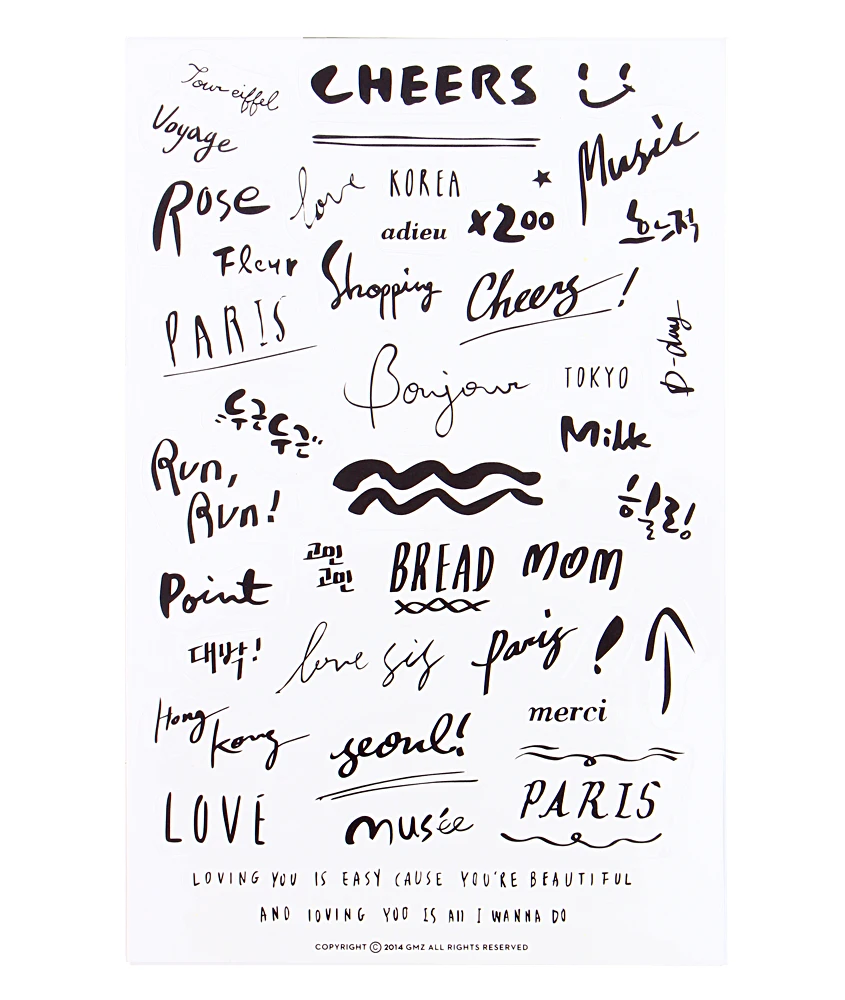 Tour eiffel
CHEERS
Voyage
Music
Rose
love
KOREA
adieu
x200
흔적
Fleur
Shopping
Cheers!
PARIS
D-day
Bonjour
TOKYO
두근두근
Milk
Run,
Run!
힐링!
고민
고민
BREAD
MOM
Point
대박!
love sis
paris!
merci
Hong
kong
seoul!
PARIS
LOVE
musée
LOVING YOU IS EASY CAUSE YOU'RE BEAUTIFUL
AND lOVING YOU IS All I WANNA DO
COPYRIGHT © 2014 GMZ ALL RIGHTS RESERVED